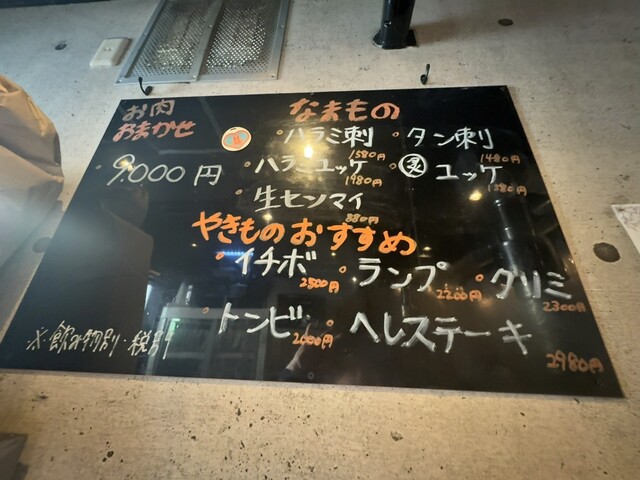 お肉
おまかせ
9.000円
※飲み物別・税別
なまもの
ハラミ刺 1580円
タン刺 1480円
ハラミユッケ 1980円
炙 ユッケ 1580円
生センマイ 880円
やきものおすすめ
イチボ 2500円
ランプ 2200円
クリミ 2300円
トンビ 2000円
ヘレステーキ 2980円